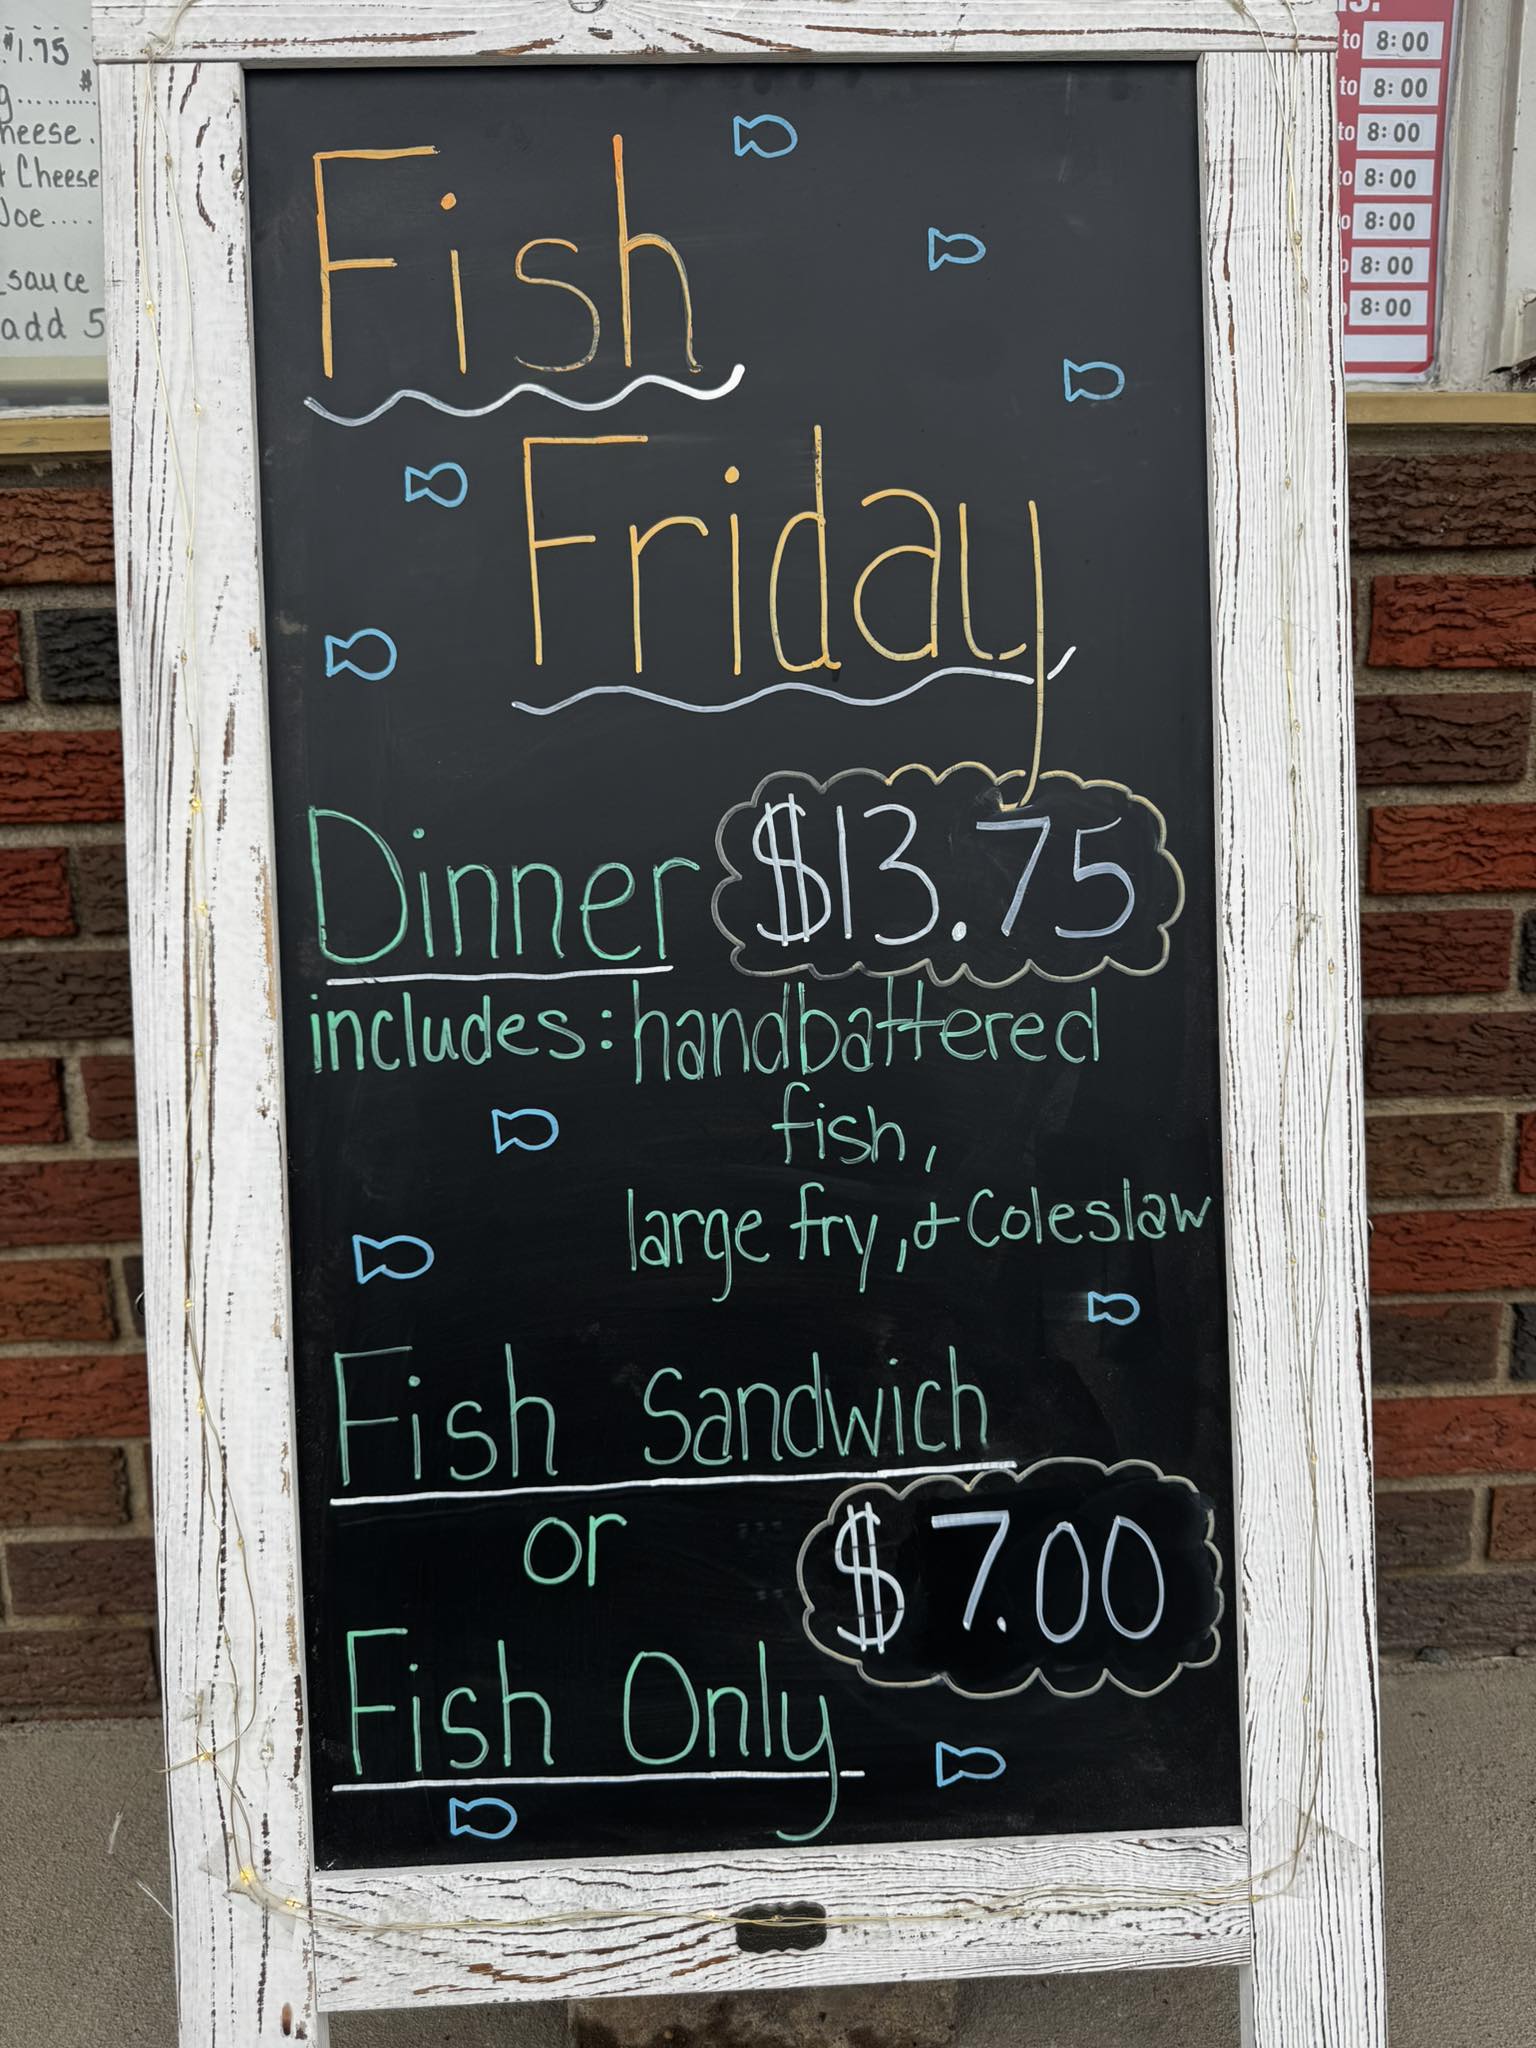 $1.75
heese.
Cheese
Joe....
sauce
add 5
to 8:00
to 8:00
to 8:00
8:00
8:00
8:00
8:00
Fish
Friday
Dinner $13.75
includes: handbattered
fish,
large fry, + Coleslaw
Fish Sandwich
or $7.00
Fish Only